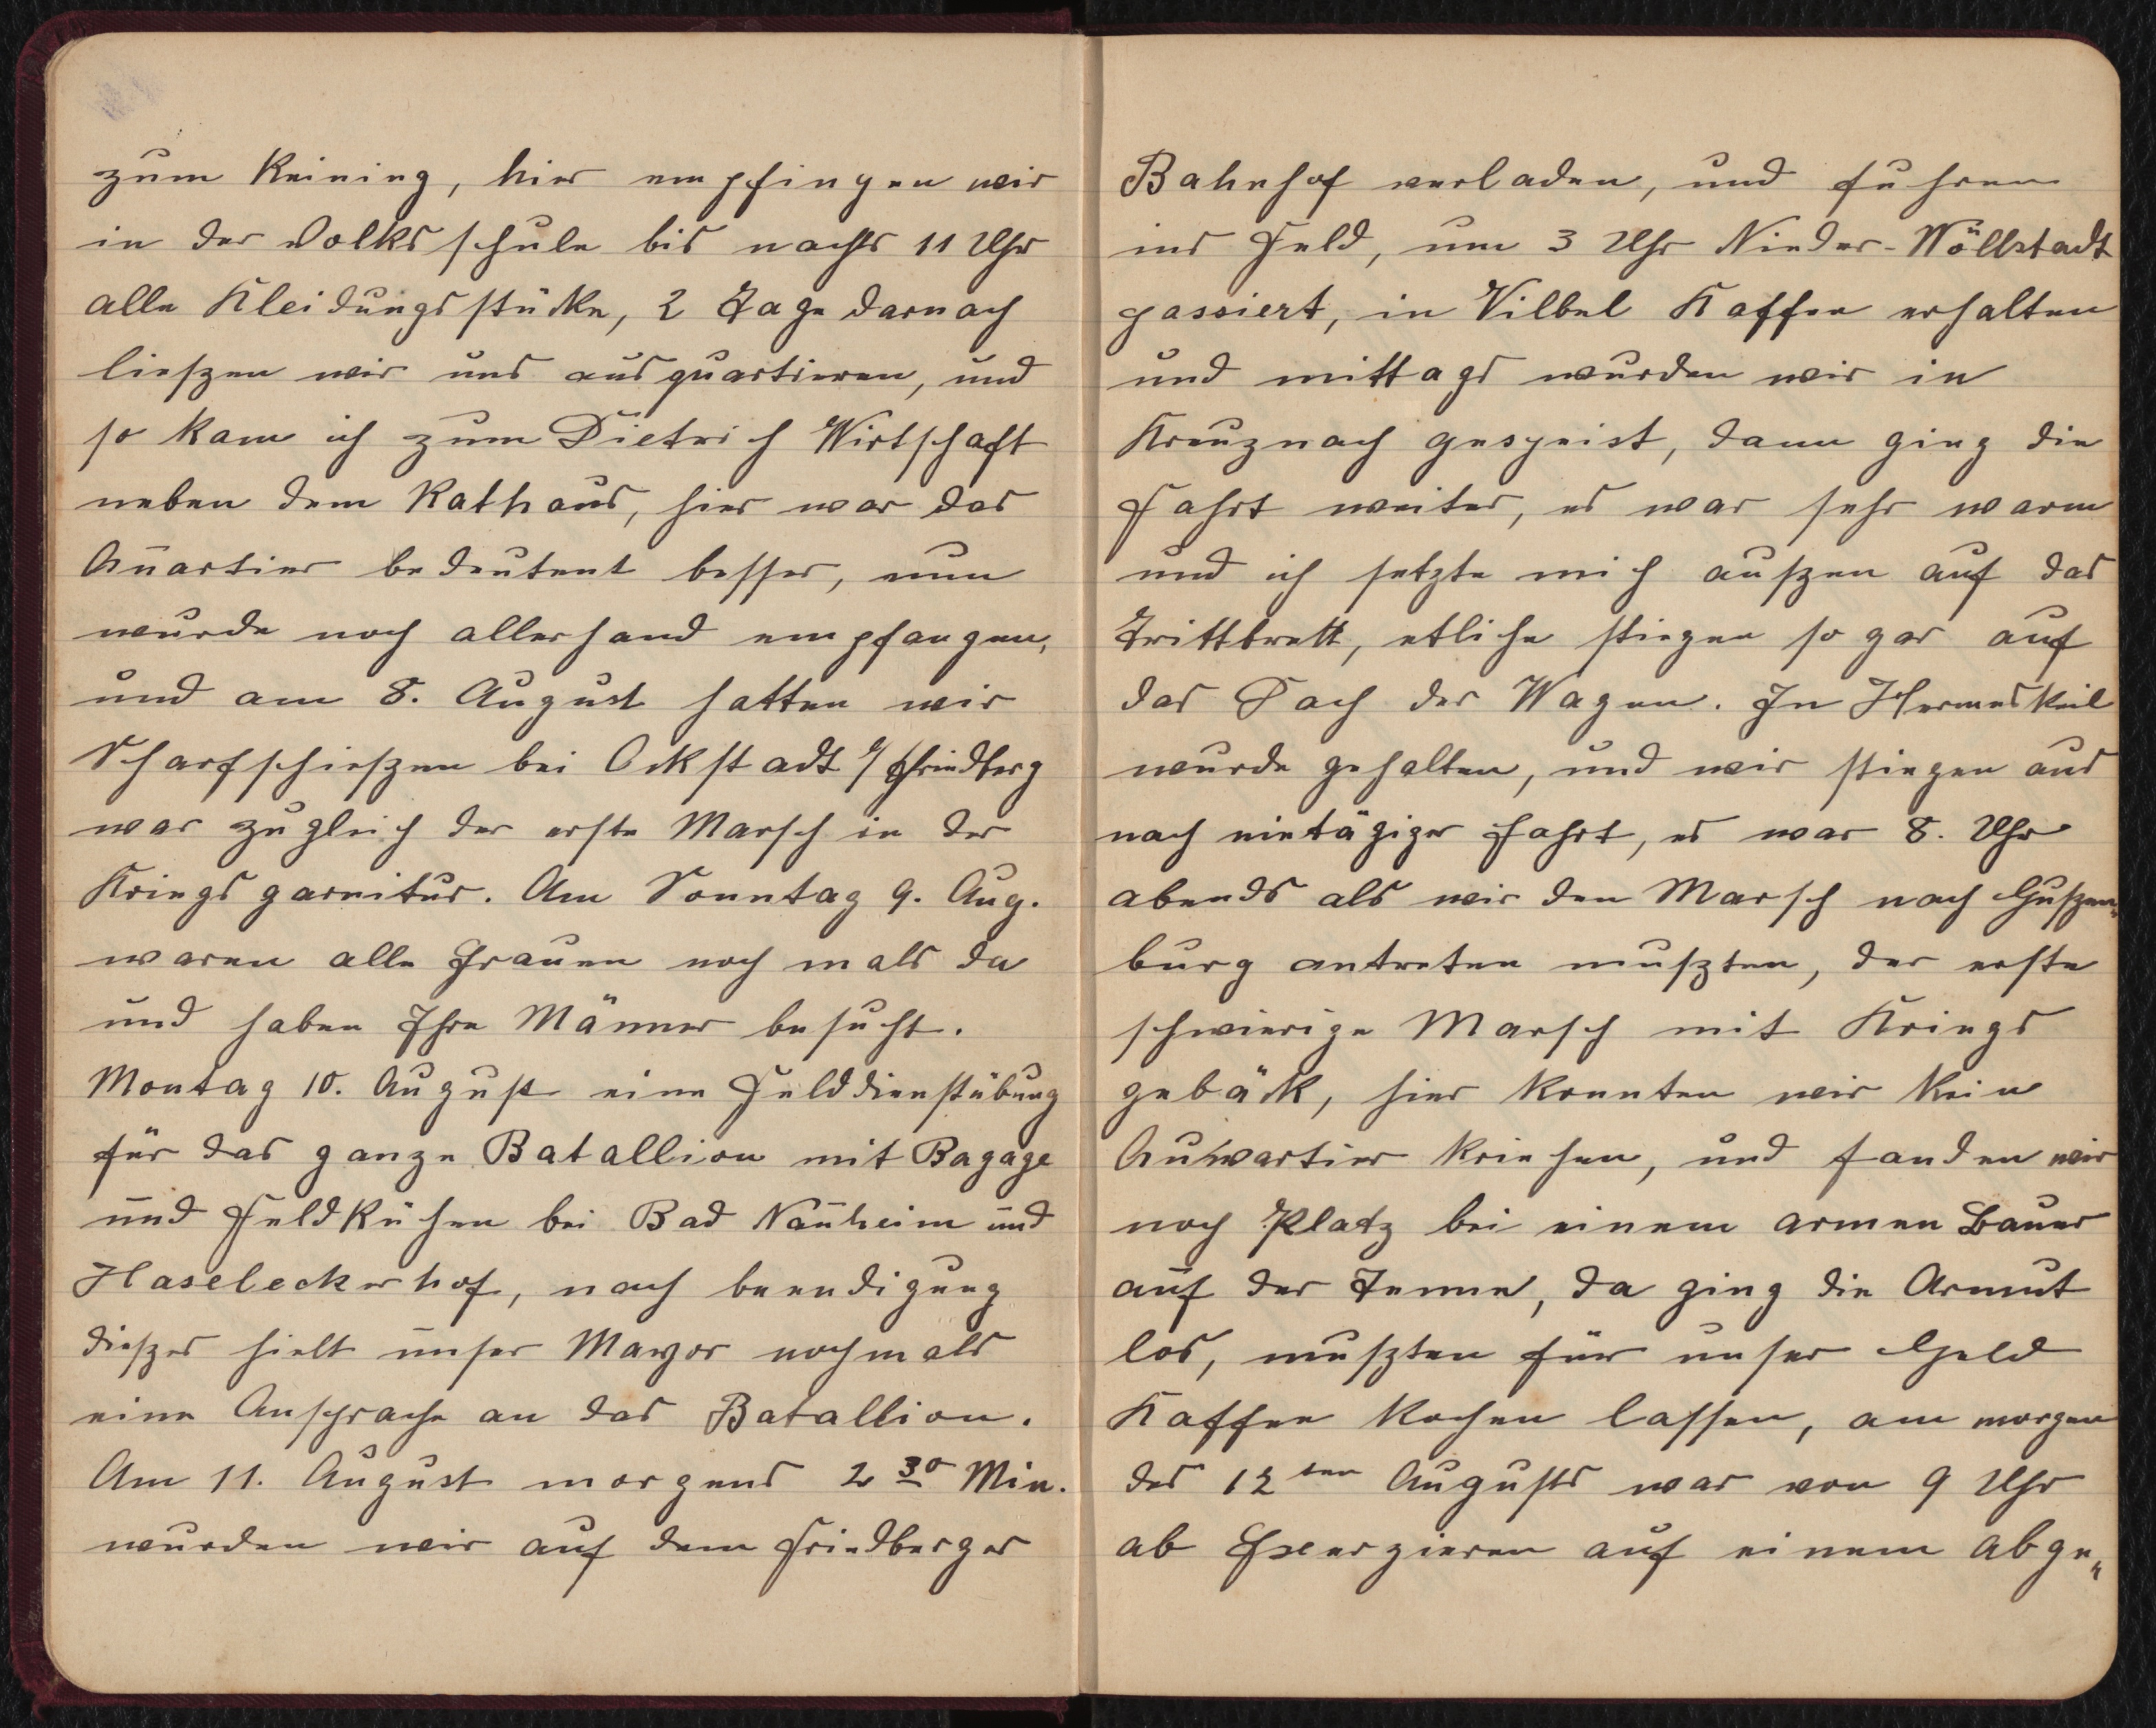 zum Reining, hier empfingen wir
in der Volksschule bis nachts 11 Uhr
alle Kleidungsstücke, 2 Tage darnach
lieszen wir uns ausquartieren, und
so kam ich zum Dietrich Wirtschaft
neben dem Rathaus, hier war das
Quartier bedeutent besser, nun
wurde noch allerhand empfangen,
und am 8. August hatten wir
Scharfschieszen bei Ockstadt b/ Friedberg
war zugleich der erste Marsch in der
Kriegsgarnitur. Am Sonntag 9. Aug.
waren alle Frauen nochmals da
und haben Ihre Männer besucht.
Montag 10. August eine Felddienstübung
für das ganze Batallion mit Bagage
und Feldküchen bei Bad Nauheim und
Haseleckerhof, nach beendigung
dieszer hielt unser Mayor nochmals
eine Ansprache an das Batallion.
Am 11. August morgens 2 30 Min.
wurden wir auf dem Friedberger
Bahnhof verladen, und fuhren
ins Feld, um 3 Uhr Nieder-Wöllstadt
passiert, in Vilbel Kaffee erhalten
und mittags wurden wir in
Kreuznach gespeist, dann ging die
Fahrt weiter, es war sehr warm
und ich setzte mich auszen auf das
Trittbrett, etliche stiegen sogar auf
das Dach der Wagen. In Hermeskeil
wurde gehalten, und wir stiegen aus
nach eintägiger Fahrt, es war 8. Uhr
abends als wir den Marsch nach Guszen„
burg antreten muszten, der erste
schwierige Marsch mit Kriegs
gebäck, hier konnten wir kein
Quwartier kriehen, und fanden wir
noch Platz bei einem armen Bauer
auf der Tenne, da ging die Armut
los, muszten für unser Geld
Kaffee kochen lassen, am morgen
des 12ten Augusts war von 9 Uhr
ab Exerzieren auf einem abge„